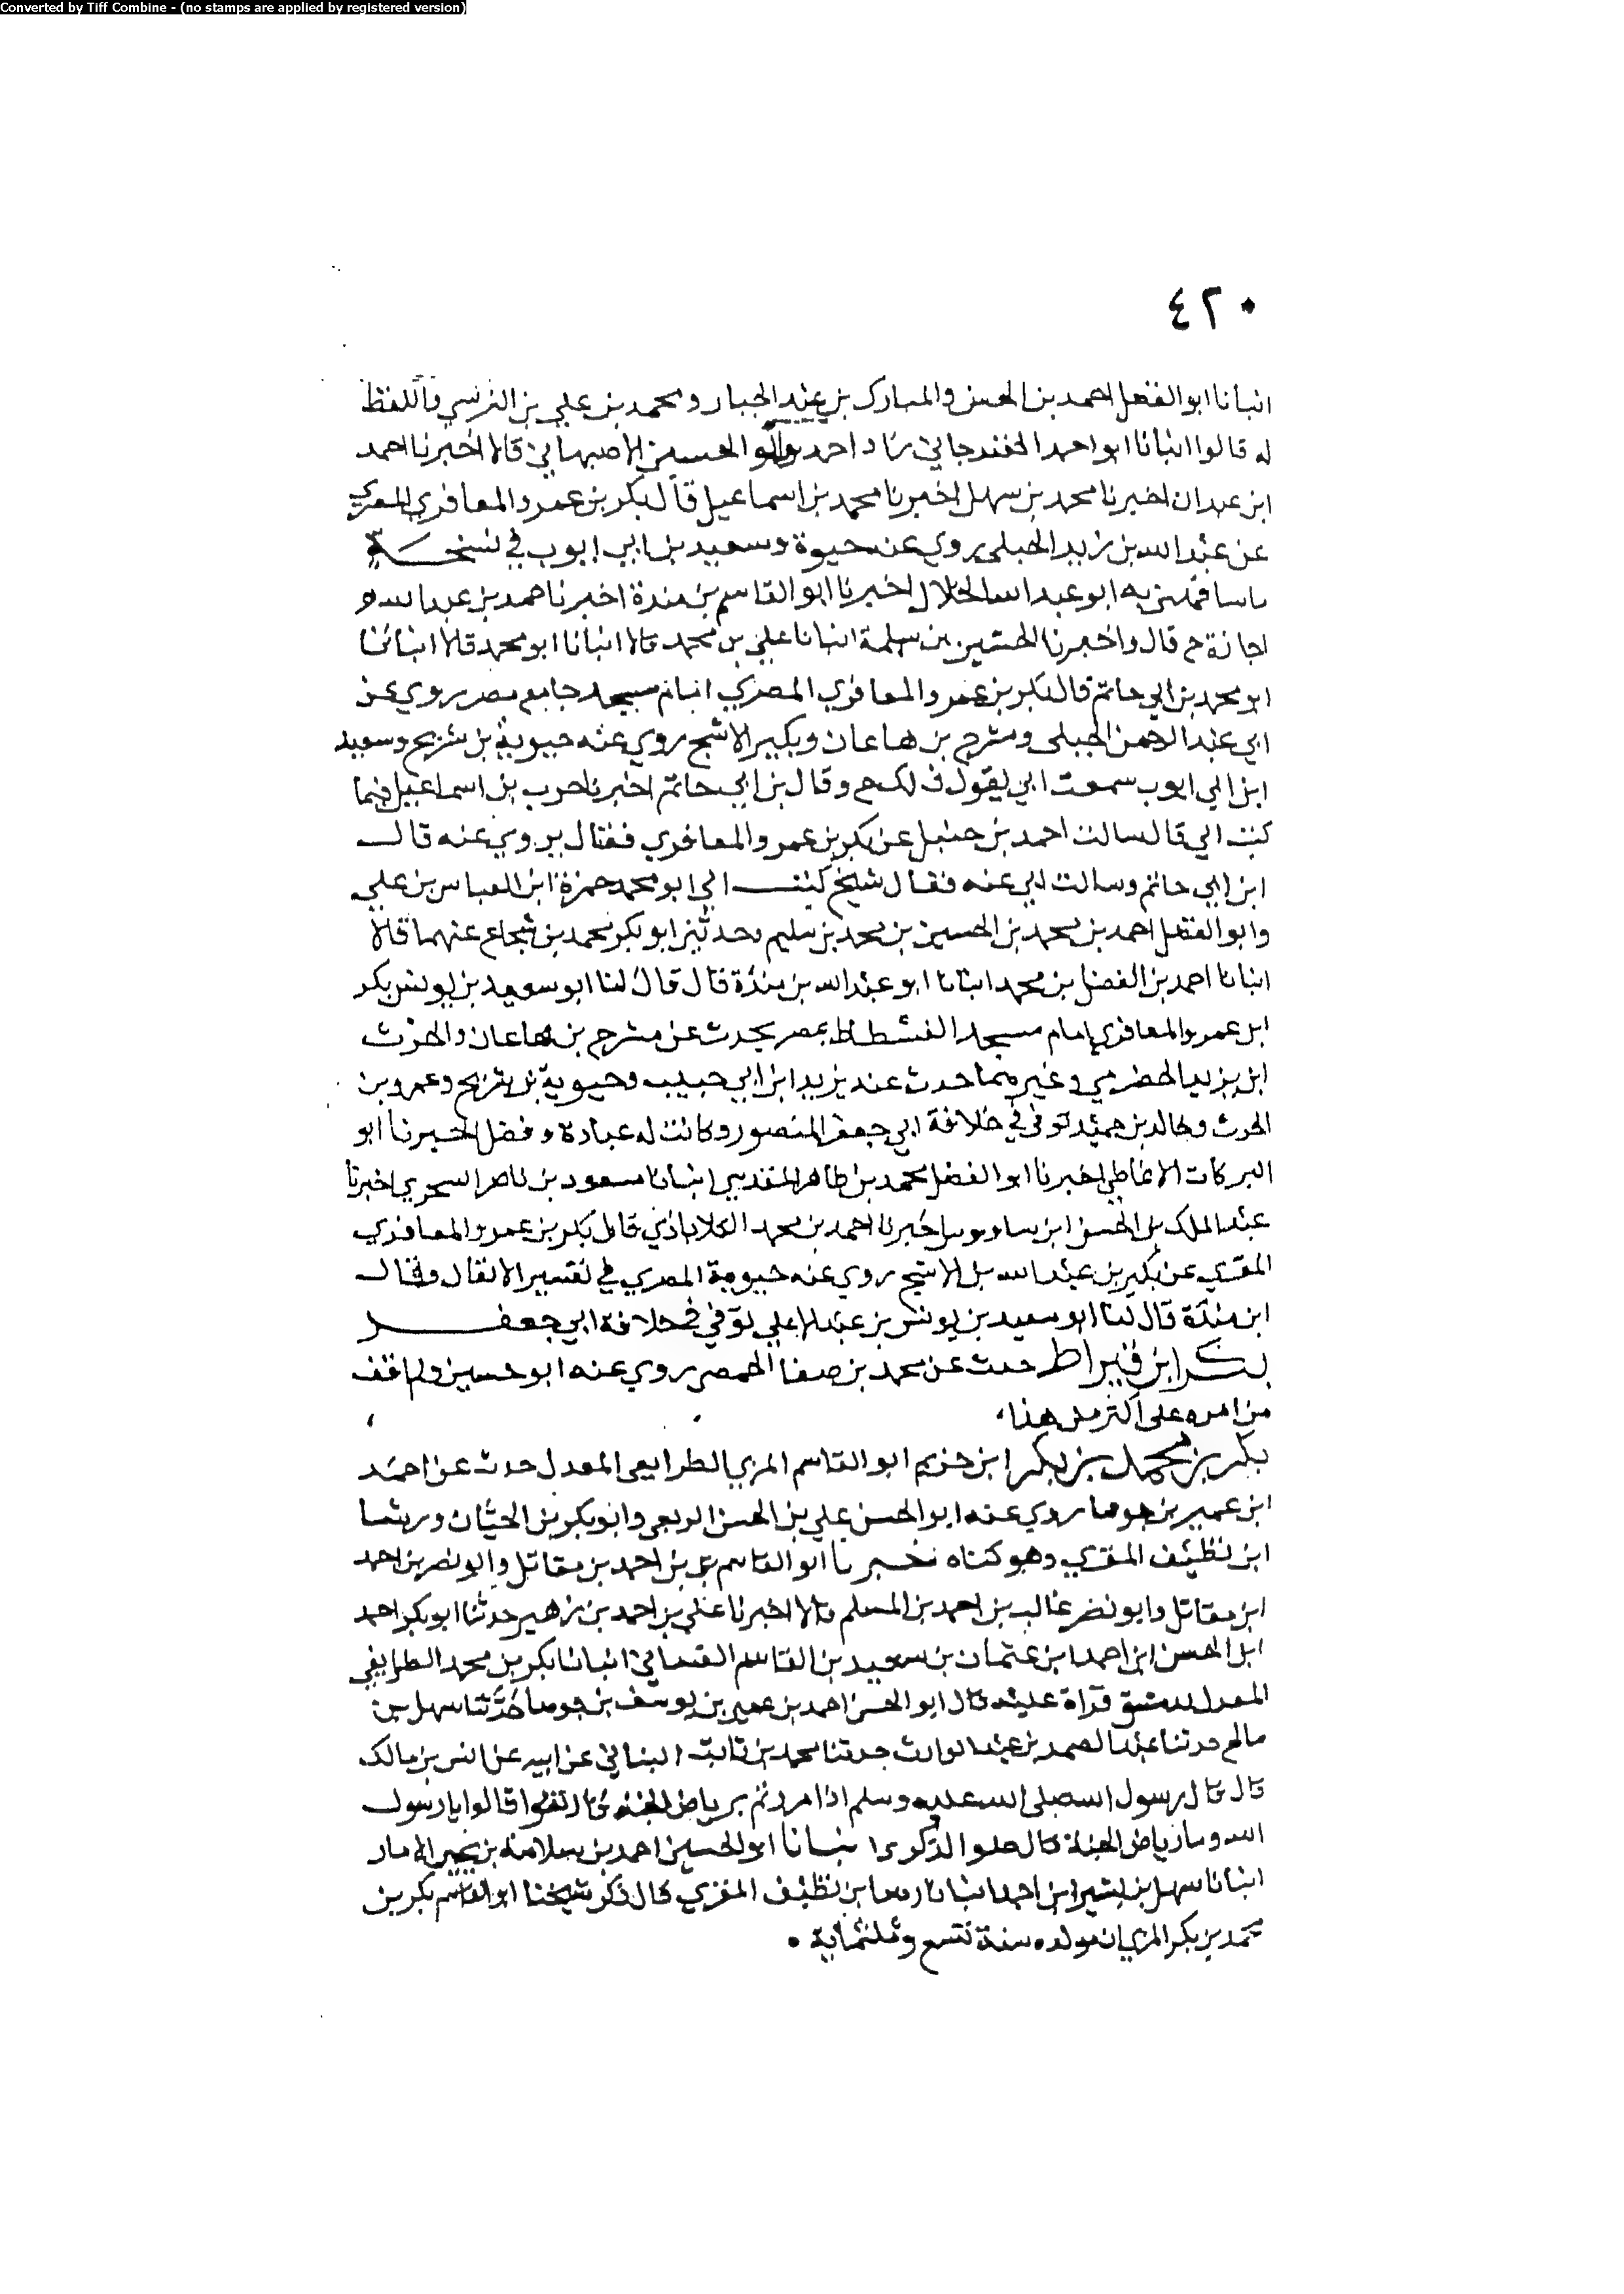 Converted by Tiff Combine - (no stamps are applied by registered version)
٤٢٠
انبانا ابو الفضل احمد بن الحسن والمبارك بن عبد الجبار ومحمد بن علي بن النرسي واللفظ
له قالوا انبانا ابو احمد الغندجاني زاد احمد وابو الحسين الاصبهاني قالا اخبرنا احمد
ابن عبدان اخبرنا محمد بن سهل اخبرنا محمد بن اسماعيل قال بكر بن عمرو المعافري المصري
عن عبد الله بن زيد الحبلى يروي عنه حيوة وسعيد بن ابي ايوب في نسخة
ما سافهنى به ابو عبد الله الخلال اخبرنا ابو القاسم بن مندة اخبرنا حمد بن عبد الله
اجازة ح قال واخبرنا الحسين بن سلمة انبانا علي بن محمد قالا انبانا ابو محمد قالا انبانا
ابو محمد بن ابي حاتم قال بكر بن عمرو المعافري المصري امام مسجد جامع مصر روي عن
ابي عبد الرحمن الحبلى ومشرح بن هاعان وبكير الاشج روي عنه حيوية بن شريح وسعيد
ابن ابي ايوب سمعت ابي يقول ذلك ح وقال بن ابي حاتم اخبرنا حرب بن اسماعيل فيما
كتب الي قال سالت احمد بن حنبل عن بكر بن عمرو المعافري فقال يروي عنه قال
ابن ابي حاتم وسالت ابي عنه فقال شيخ كتب الي ابو محمد حمزة ابن العباس بن علي
وابو الفضل احمد بن محمد بن الحسين بن محمد بن سليم وحدثني ابو بكر محمد بن شجاع عنهما قالا
انبانا احمد بن الفضل بن محمد انبانا ابو عبد الله بن مندة قال قال لنا ابو سعيد بن يونس بكر
ابن عمرو المعافري امام مسجد الفسطاط بمصر يحدث عن مشرح بن هاعان والحرث
ابن يزيد الحضرمي وغيرهما حدث عنه يزيد ابن ابي حبيب وحيوية بن شريح وعمرو بن
الحرث وخالد بن حميد توفي في خلافة ابي جعفر المنصور وكانت له عبادة وفضل اخبرنا ابو
البركات الانماطي اخبرنا ابو الفضل محمد بن طاهر المقدسي انبانا مسعود بن ناصر السجزي اخبرنا
عبد الملك بن الحسن ابن سياووس اخبرنا احمد بن محمد الكلاباذي قال بكر بن عمرو المعافري
المصري عن بكير بن عبد الله بن الاشج روي عنه حيوية المصري في تفسير الانفال وقال
ابن مندة قال لنا ابو سعيد بن يونس بن عبد الاعلي توفي في خلافة ابي جعفر
بكر ابن قيراط حدث عن محمد بن مصفا الحمصي روي عنه ابو حسين ولم اقف
من امره علي اكثر من هذا
بكر بن محمد بن بكر ابن خزيم ابو القاسم المري الطرايفى المعدل حدث عن احمد
ابن عمير بن جوصا روي عنه ابو الحسن علي بن الحسن الربعي وابو بكر بن الحتان ورشا
ابن نظيف المقري وهو كناه اخبرنا ابو القاسم بن احمد بن مقاتل وابو نصر بن احمد
ابن مقاتل وابو نصر غالب بن احمد بن المسلم قالا اخبرنا علي بن احمد بن زهير حدثنا ابو بكر احمد
ابن الحسن ابن احمد ابن عثمان بن سعيد بن القاسم الغساني انبانا بكر بن محمد الطرايفي
المعدل بدمشق قراة عليه قال ابو الحسن احمد بن عمير بن يوسف بن جوصا حدثنا سهل بن
صالح حدثنا عبد الصمد بن عبد الوارث حدثنا محمد بن ثابت البناني عن ابيه عن انس بن مالك
قال قال رسول الله صلى الله عليه وسلم اذا مررتم برياض الجنة فارتعوا قالوا يا رسول
الله وما رياض الجنة قال حلق الذكر انبانا ابو الحسين احمد بن سلامة بن يحيى الابار
انبانا سهل بن بشير ابن احمد انبانا رشا بن نظيف المقري قال ذكر شيخنا ابو القاسم بكر بن
محمد بن بكر المري ان مولده سنة تسع وثلثماية .